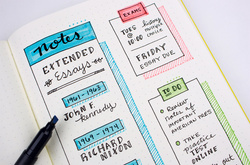 notes
EXTENDED
Essays
1961-1963
JOHN F.
Kennedy
1969-1974
RICHARD
NIXON
EXAMS
TUES
@
10:00
FRIDAY
ESSAY DUE
TO DO
Review
notes of
IMPORTANT
AMERICAN PRES
TAKE
PRACTICE
TEST
ONLINE